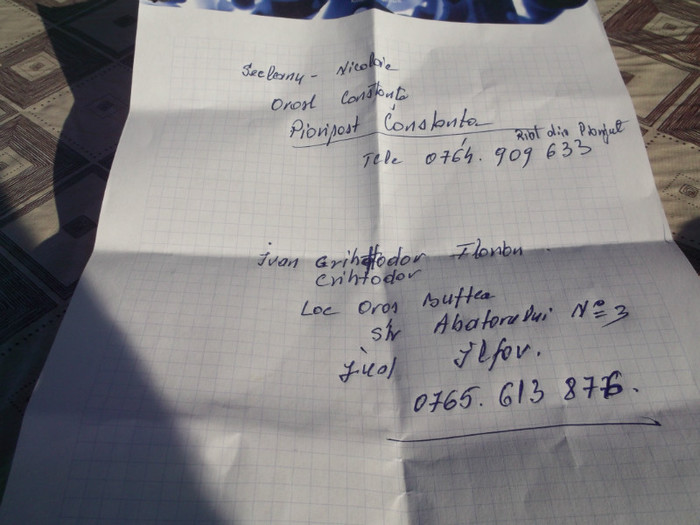 Secleanu - Nicolaie
Orosl Constonta
Pioripost Constonta
Riot din Plonjut
Tele 0764. 909 633
Ivan Grihttodor Floribu
Crihtodor
Loc Oros Buftea
Str Abatorului Nº 3
Jud Ilfov.
0765. 613 876.